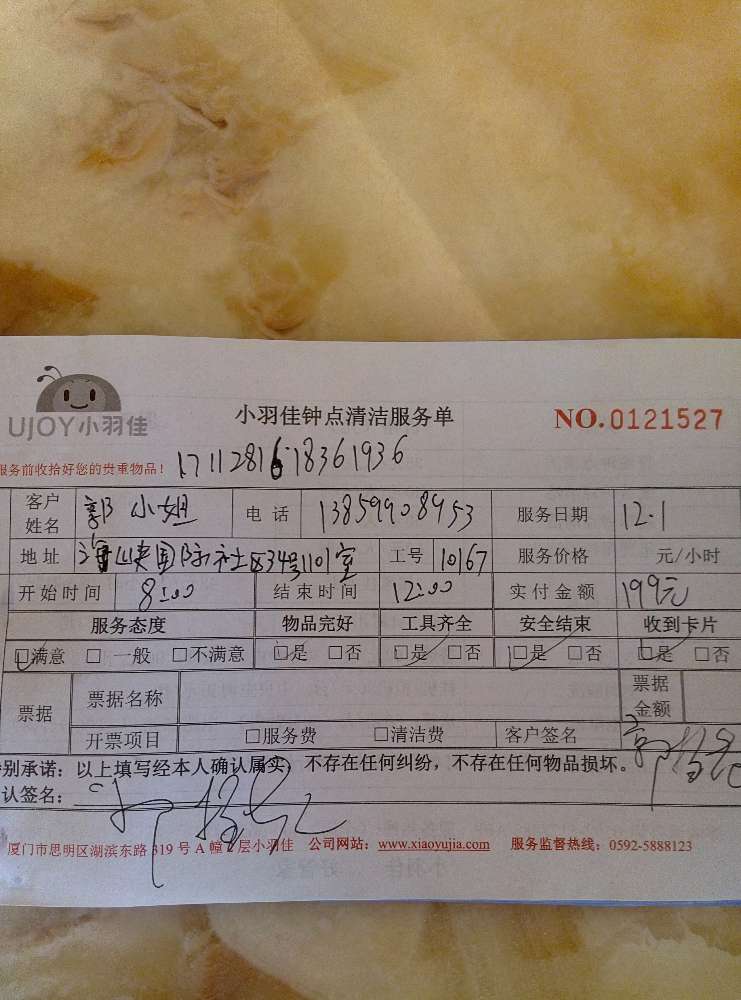 UJOY小羽佳 小羽佳钟点清洁服务单 NO.0121527
服务前收拾好您的贵重物品! 1711281618361936
客户姓名 郭小姐 电话 13859908953 服务日期 12.1
地址 海峡国际社区34号1101室 工号 10167 服务价格 元/小时
开始时间 8:00 结束时间 12:00 实付金额 199元
服务态度 物品完好 工具齐全 安全结束 收到卡片
□满意 □一般 □不满意 □是 □否 □是 □否 □是 □否 □是 □否
票据 票据名称 票据金额
开票项目 □服务费 □清洁费 客户签名
别承诺:以上填写经本人确认属实,不存在任何纠纷,不存在任何物品损坏。
认签名:
厦门市思明区湖滨东路319号A幢2层小羽佳 公司网站:www.xiaoyujia.com 服务监督热线:0592-5888123